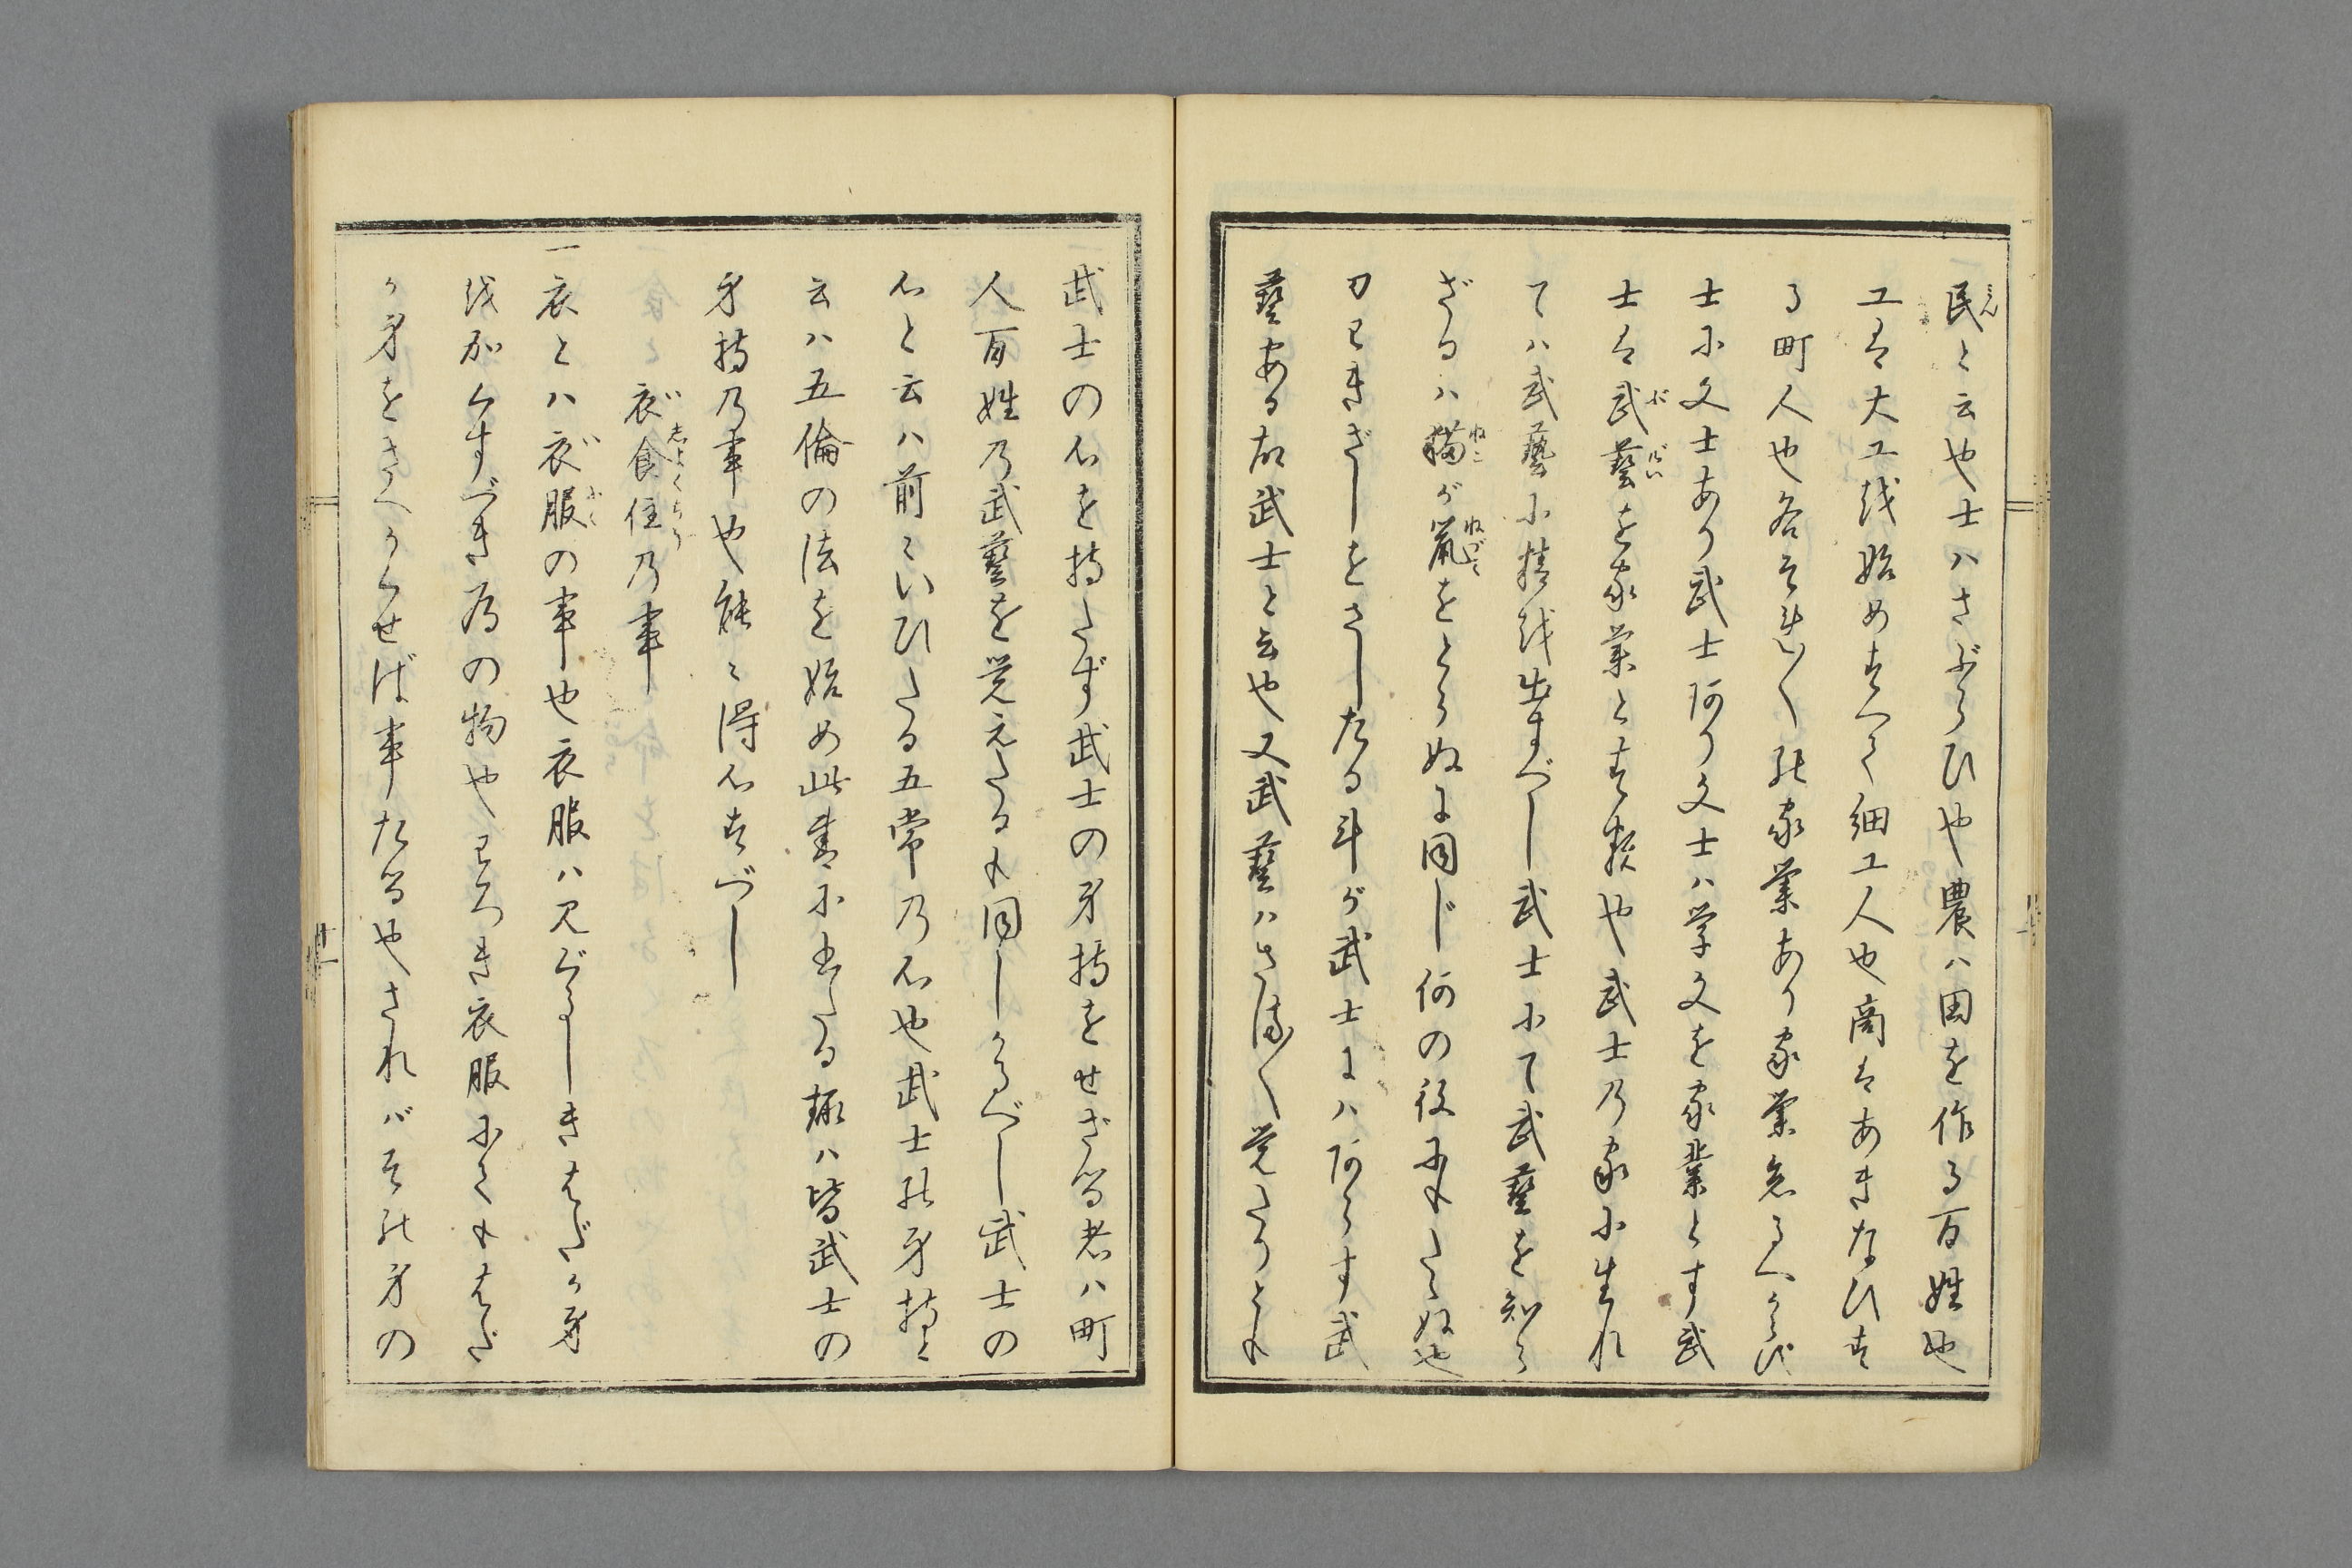 民と云也士ハさぶらひ也農ハ田を作る百姓也
工は大工を始めすへて細工人也商はあきなひす
る町人也各それ〳〵の家業あり家業怠るへからず
士に文士あり武士あり文士ハ学文を家業とす武
士は武藝を家業とす類也武士乃家に生れ
てハ武藝に精を出すべし武士にて武藝を知ら
ざるハ猫が鼠をとらぬに同じ何の役にもたゝぬ也
刀わきざしをさしたる斗が武士にハあらす武
藝ある故武士と云也又武藝ハさま〳〵覚たりとも
武士の心を持たず武士の身持をせざる者ハ町
人百姓乃武藝を覚えたるも同しかるべし武士の
心と云ハ前にいひたる五常乃心也武士の身持と
云ハ五倫の法を始め此書に出たる趣ハ皆武士の
身持乃事也能々得心すべし
衣食住乃事
一衣とハ衣服の事也衣服ハ見ぐるしきはだか身
をかくすべき為の物也わろき衣服にてもはだ
か身をさへかくせば事たる也されバその身の